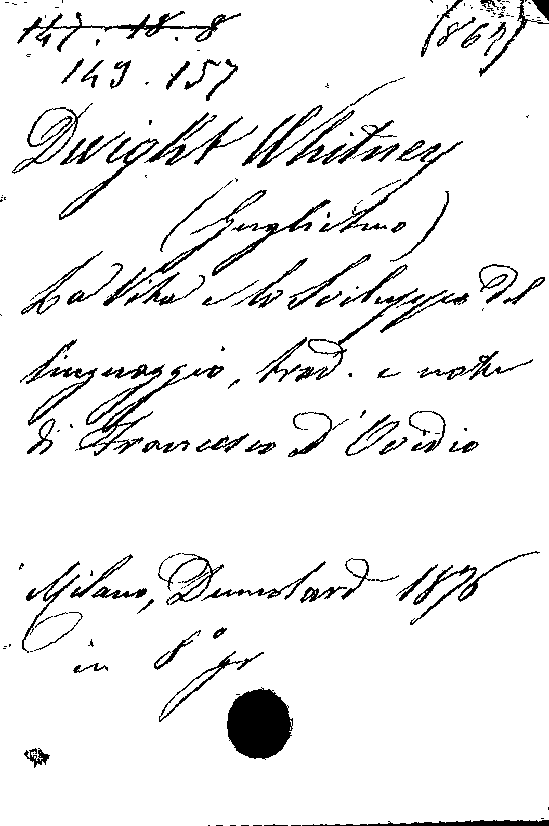 147. 18. 8
149. 157
Dwight Whitney
(Guglielmo)
La Vita e lo Sviluppo del
linguaggio, trad. e note
di Francesco D'Ovidio
Milano, Dumolard 1876
in 8° gr